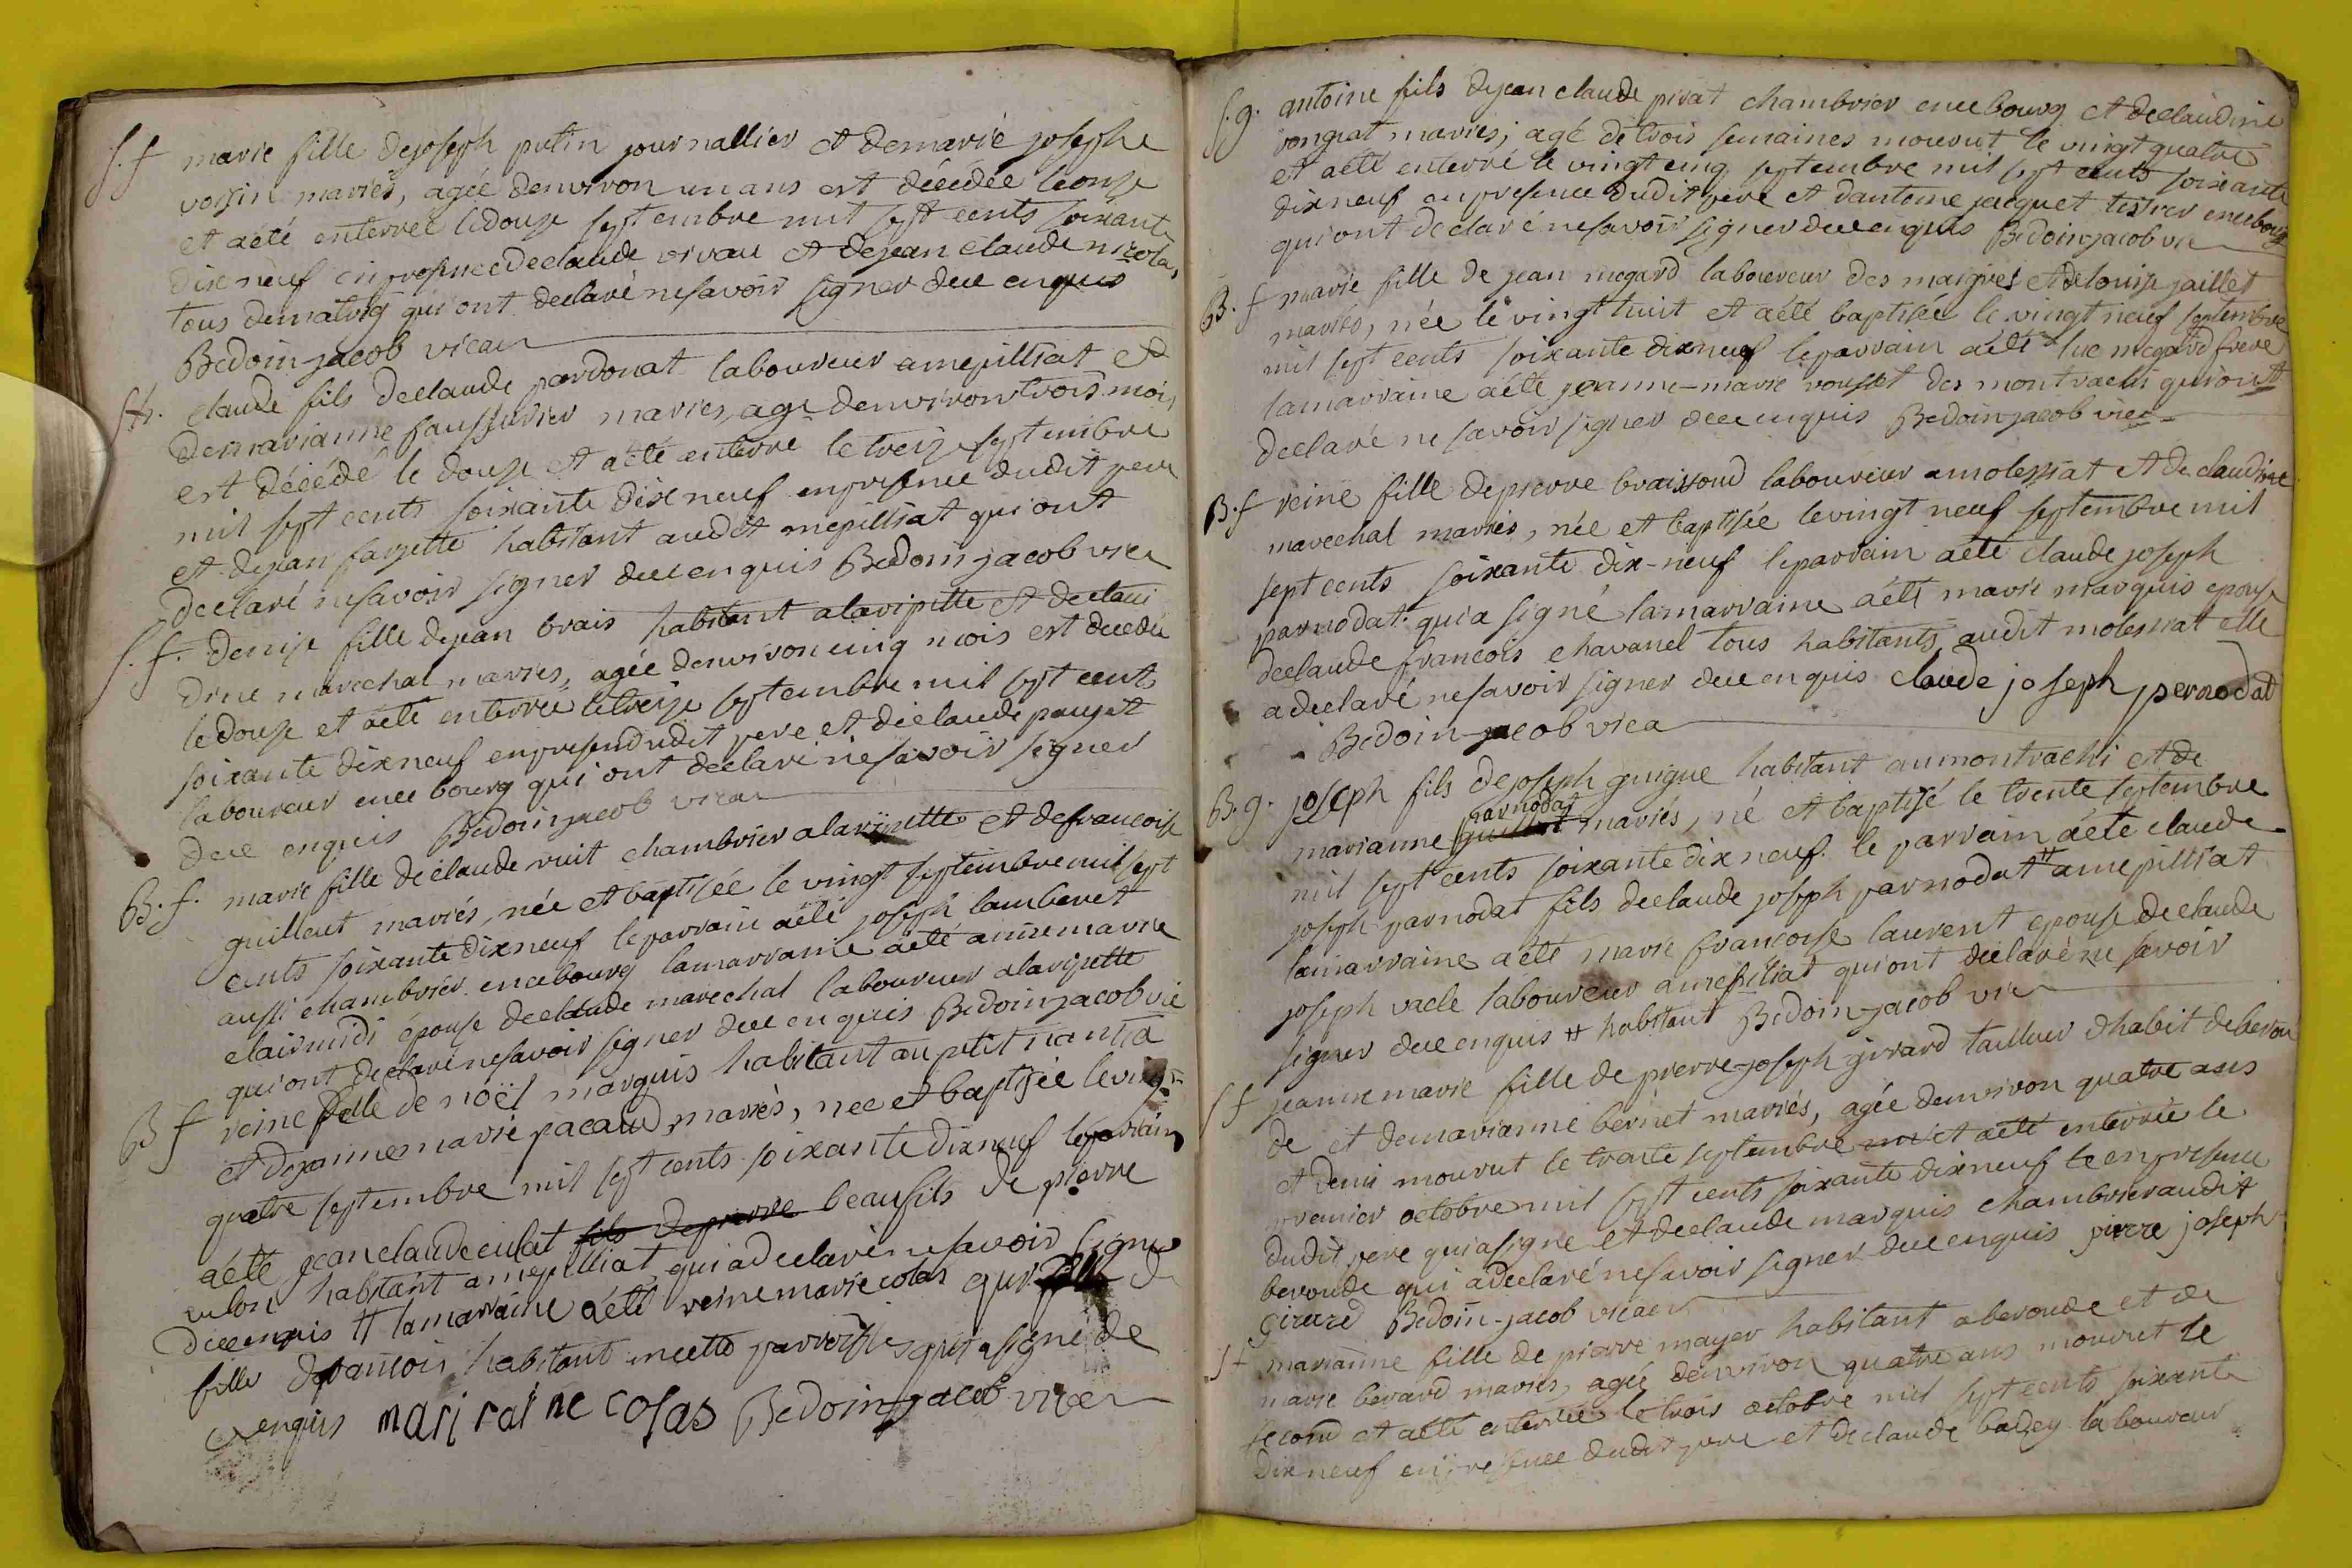 S. f marie fille dejoseph putin journallier et demarie josephe
voisin mariés, agée denviron un ans est décédée leonze
et aété enterrée ledouze septembre mil sept cents soixante
dixneuf enpresence declaude vivau et dejean claude nicolas,
tous dematorg qui ont declaré nesavoir signer dece enquis
Bedoin-jacob vicau
claude fils declaude pardonat laboureur amepilliat et
demarianne faussurier mariés, agé denviron trois mois,
est décédé le douze et aété enterré le treize septembre
mil sept cents soixante dix neuf enpresence dudit pere
et dejean farjette habitant audit mepilliat qui ont
declaré nesavoir signer dece enquis Bedoin-jacob vica
S. f. denise fille dejean brais habitant alavipette et declau
dine marechal mariés, agée denviron cinq mois est decedée
ledouze et aété enterrée letreize septembre mil sept cents
soixante dixneuf enpresendudit pere et declaude pauget
laboureur ence bourg qui ont declaré nesavoir signer
dece enquis Bedoin-jacob vicau
B. f. marie fille declaude ruit chambrier alavipette et defrancoise
guilleut mariés, née et baptisée le vingt septembre mil sept
cents soixante dixneuf leparrain aété joseph lamberet
aussi chambrier encebourg lamarraine aété annemarie
clairmidi épouse declaude marechal laboureur alavipette
qui ont declaré nesavoir signer dece enquis Bedoin-jacob vic
B f reine fille de noël marquis habitant au petit nantia
et dejeannemarie pacaud, mariés, nee et baptisée levingt
quatre septembre mil sept cents soixante dixneuf leparrain
aété jean claude culat fils depierre beaufils de pierre
culon habitant amepilliat qui adeclaré nesavoir signer
deceenquis # lamarraine aété reinemarie colas qui fille de
fille defrancois habitant encette parroisse qui asigné de
ce enquis mari raine colas Bedoin-jacob vicau
S. g. antoine fils dejean claude pirat chambrier encebourg et declaudine
rongrat mariés; agé de trois semaines mourut le vingt quatre
et aété enterré le vingt cinq septembre mil sept cents soixante
dixneuf enpresence dudit pere et dantoine jacquet tistrer encebourg
qui ont declaré nesavoir signer dece enquis Bedoin-jacob vic
B. f marie fille de jean megard laboureur des maigres et delouise jaillet
mariés, née le vingt huit et aété baptisée le vingt neuf septembre
mil sept cents soixante dixneuf leparrain aété luc megard frere
lamarraine aété jeanne-marie rousset des montrachi qui ont
declaré ne savoir signer dece enquis Bedoin-jacob vica
B. f reine fille depierre braissoud laboureur amolessiat et de claudine
marechal mariés, née et baptisée levingt neuf septembre mil
sept cents soixante dix-neuf leparrain aété claude joseph
parnodat qui a signé lamarraine aété marie marquis epouse
declaude francois chavanel tous habitants audit molessiat elle
adeclaré nesavoir signer dece enquis claude joseph pernodat
Bedoin-jacob vica
B. g. joseph fils dejoseph guigue habitant aumontrachi et de
parnodat
marianne guillot mariés, né et baptisé le trente septembre
mil sept cents soixante dix neuf. le parrain aété claude
joseph parnodat fils declaude joseph parnodat # amepilliat
lamarraine aété marie francoise laurent epouse declaude
joseph vacle laboureur amepilliat qui ont declaré ne savoir
signer dece enquis # habitant Bedoin-jacob vica
S f jeanne marie fille de pierre-joseph girard tailleur dhabit deberou
de et demarianne bernet mariés, agée denviron quatre ans
et demi mourut le trente septembre et aété enterrée le
premier octobre mil sept cents soixante dixneuf enpresence
dudit pere qui asigne et declaude marquis chambrieraudit
beroude qui adeclaré nesavoir signer dece enquis pierre joseph
girard Bedoin-jacob vicau
S f marianne fille de pierre mayer habitant aberoude et de
marie berard mariés, agée denviron quatre ans mourut le
second et aété enterrée le trois octobre mil sept cents soixante
dixneuf enpresence dudit pere et declaude badey laboureur